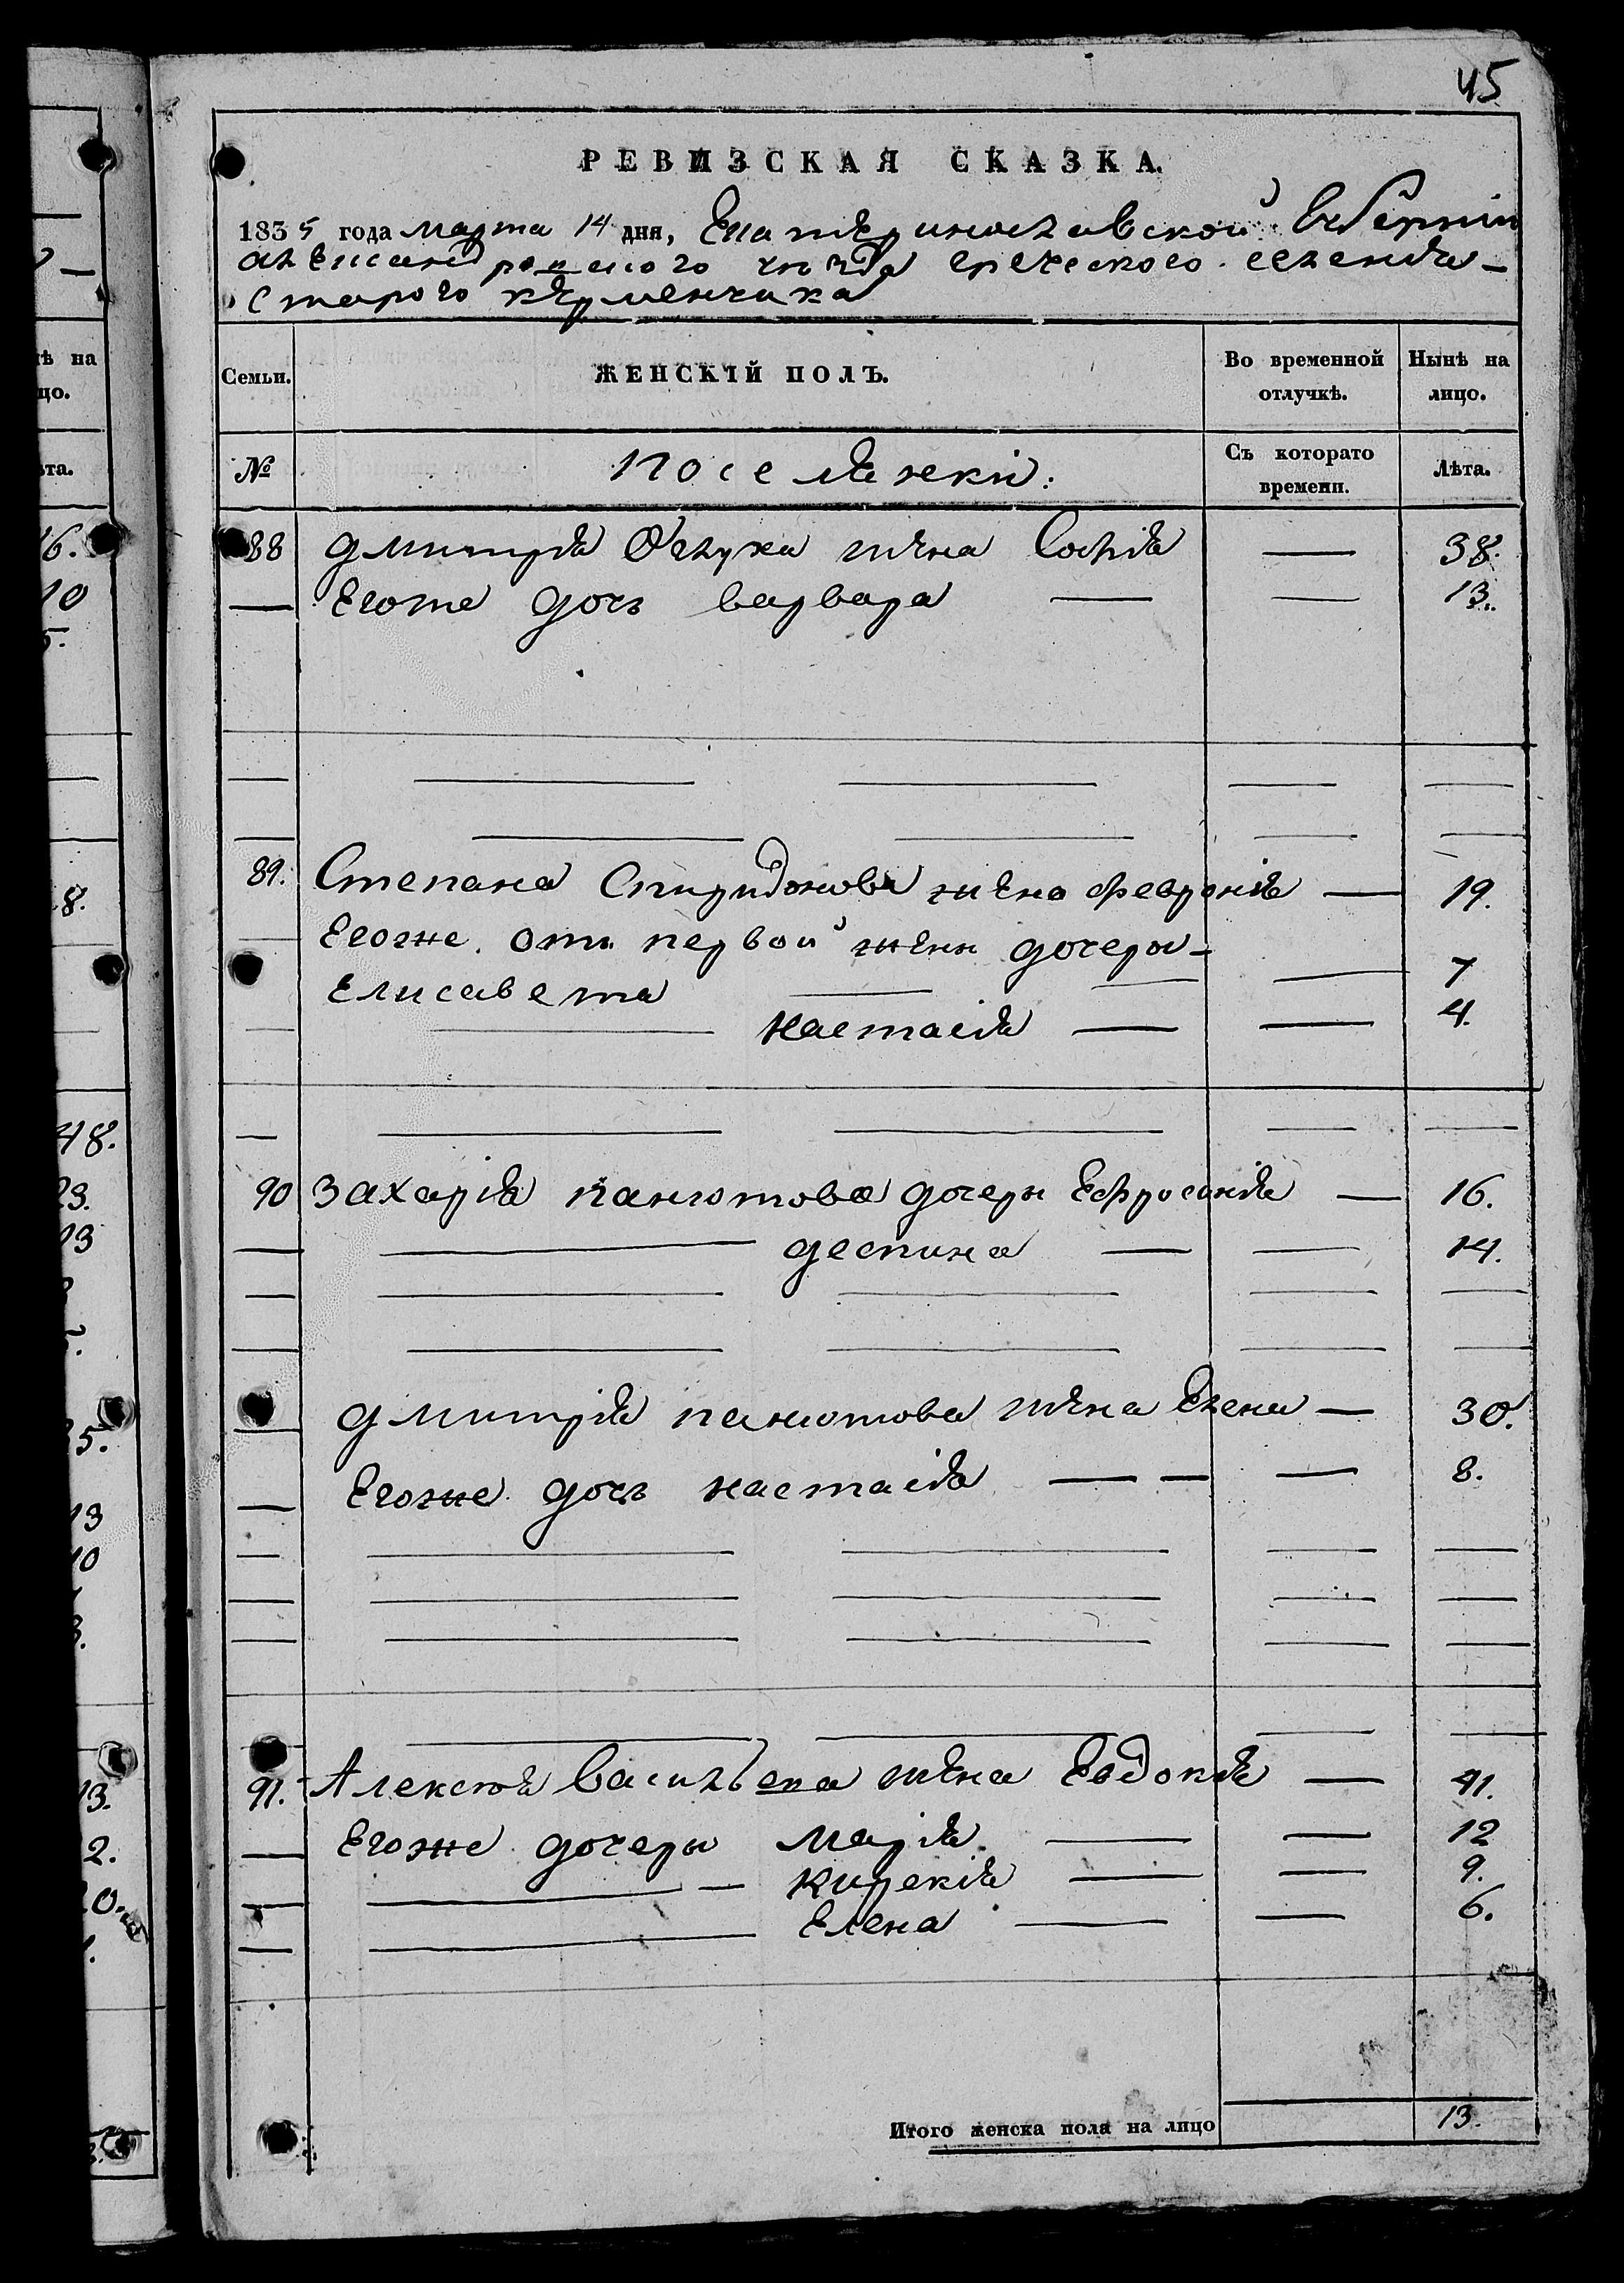 45
РЕВИЗСКАЯ СКАЗКА.
1835 года марта 14 дня, Екатѣринославской Губѣрнии
алѣксандровского уѣзда греческого селенія
Старого кѣрменчика
Семьи. ЖЕНСКІЙ ПОЛЪ. Во временной отлучкѣ. Нынѣ на лицо.
№ поселѣнки: Съ котораго времени. Лѣта.
88 дмитрія жѣна Софія — 38.
— Егоже дочь варвара — — 13.
89. Степана Спиридонова жѣна февронія — 19.
— Егоже отъ первой жѣни дочеры —
Елисавета — — — 7
— — настасія — — 4.
90 Захарія панютова дочеры Ефросинія — 16.
— — деспина — — 14.
— дмитрія панютова жѣна Елена — 30.
— Егоже дочь настасія — — — 8.
91. Алексѣя Васильева жѣна Евдокія — 41.
— Егоже дочеры марія — — 12
— — — кирекія — — 9.
— — Елена — — 6.
Итого женска пола на лицо 13.
ѣ на
цо.
ѣта.
16.
10
5.
8.
48.
23.
13
5.
13
10
3.
13.
2.